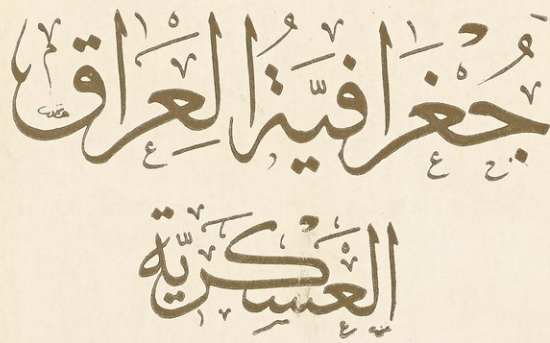 جُغرَافيَّةُ العِرَاق
العَسكَرِيَّة